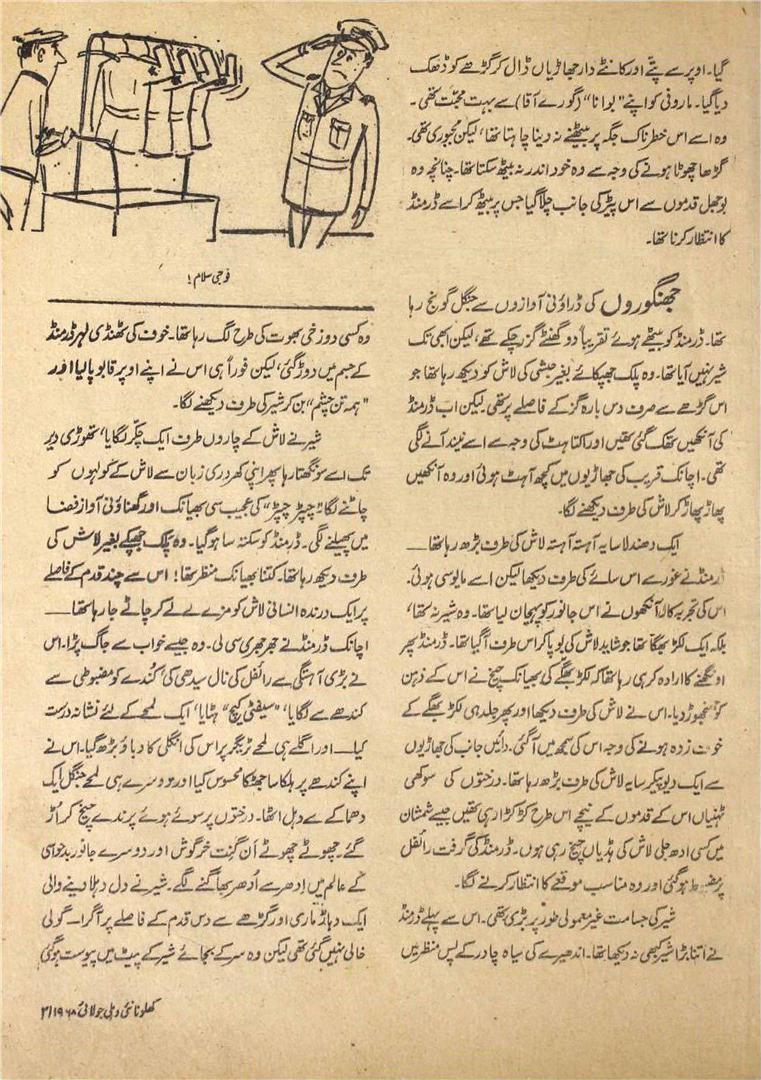 گیا۔ اوپر سے پتّے اور کانٹے دار جھاڑیاں ڈال کر گڑھے کو ڈھک
دیا گیا۔ ماروفی کو اپنے "بوانا" (گورے آقا) سے بہت محبّت تھی۔
وہ اسے اس خطرناک جگہ پر بیٹھنے نہ دینا چاہتا تھا، لیکن مجبوری تھی۔
گڑھا چھوٹا ہونے کی وجہ سے وہ خود اندر نہ بیٹھ سکتا تھا۔ چنانچہ وہ
بوجھل قدموں سے اس پیڑ کی جانب چلا گیا جس پر بیٹھ کر اسے ڈرمنڈ
کا انتظار کرنا تھا۔
جھنگوروں کی ڈراؤنی آوازوں سے جنگل گونج رہا
تھا۔ ڈرمنڈ کو بیٹھے ہوئے تقریباً دو گھنٹے گزر چکے تھے، لیکن ابھی تک
شیر نہیں آیا تھا۔ وہ پلک جھپکائے بغیر حبشی کی لاش کو دیکھ رہا تھا جو
اس گڑھے سے صرف دس بارہ گز کے فاصلے پر تھی لیکن اب ڈرمنڈ
کی آنکھیں تھک گئی تھیں اور اکتاہٹ کی وجہ سے اسے نیند آنے لگی
تھی۔ اچانک قریب کی جھاڑیوں میں کچھ آہٹ ہوئی اور وہ آنکھیں
پھاڑ پھاڑ کر لاش کی طرف دیکھنے لگا۔
ایک دھندلا سایہ آہستہ آہستہ لاش کی طرف بڑھ رہا تھا—
ڈرمنڈ نے غور سے اس سائے کی طرف دیکھا لیکن اسے مایوسی ہوئی۔
اس کی تجربہ کار آنکھوں نے اس جانور کو پہچان لیا تھا۔ وہ شیر نہ تھا،
بلکہ ایک لکڑ بھگّا تھا جو شاید لاش کی بو پا کر اس طرف آ گیا تھا۔ ڈرمنڈ پھر
اونگھنے کا ارادہ کر ہی رہا تھا کہ لکڑ بھگے کی بھیانک چیخ نے اس کے ذہن
کو جھنجھوڑ دیا۔ اس نے لاش کی طرف دیکھا اور پھر جلد ہی لکڑ بھگے کے
خوف زدہ ہونے کی وجہ اس کی سمجھ میں آ گئی۔ دائیں جانب کی جھاڑیوں
سے ایک دیو پیکر سایہ لاش کی طرف بڑھ رہا تھا۔ درختوں کی سوکھی
ٹہنیاں اس کے قدموں کے نیچے اس طرح کڑکڑا رہی تھیں جیسے شمشان
میں کسی ادھ جلی لاش کی ہڈیاں چیخ رہی ہوں۔ ڈرمنڈ کی گرفت رائفل
پر مضبوط ہو گئی اور وہ مناسب موقعے کا انتظار کرنے لگا۔
شیر کی جسامت غیر معمولی طور پر بڑی تھی۔ اس سے پہلے ڈرمنڈ
نے اتنا بڑا شیر کبھی نہ دیکھا تھا۔ اندھیرے کی سیاہ چادر کے پس منظر میں
فوجی سلام!
وہ کسی دوزخی بھوت کی طرح لگ رہا تھا۔ خوف کی ٹھنڈی لہر ڈرمنڈ
کے جسم میں دوڑ گئی، لیکن فوراً ہی اس نے اپنے اوپر قابو پا لیا اور
"ہمہ تن چشم" بن کر شیر کی طرف دیکھنے لگا۔
شیر نے لاش کے چاروں طرف ایک چکّر لگایا، تھوڑی دیر
تک اسے سونگھتا رہا پھر اپنی کھردری زبان سے لاش کے کولہوں کو
چاٹنے لگا۔ "چپڑ چپڑ" کی عجیب سی بھیانک اور گھناؤنی آواز فضا
میں پھیلنے لگی۔ ڈرمنڈ کو سکتہ سا ہو گیا۔ وہ پلک جھپکے بغیر لاش کی
طرف دیکھ رہا تھا۔ کتنا بھیانک منظر تھا! اس سے چند قدم کے فاصلے
پر ایک درندہ انسانی لاش کو مزے لے لے کر چاٹے جا رہا تھا—
اچانک ڈرمنڈ نے جھرجھری سی لی۔ وہ جیسے خواب سے جاگ پڑا۔ اس
نے بڑی آہستگی سے رائفل کی نال سیدھی کی، کُندے کو مضبوطی سے
کندھے سے لگایا، "سیفٹی کیچ" ہٹایا، ایک لمحے کے لئے نشانہ درست
کیا— اور اگلے ہی لمحے ٹریگر پر اس کی انگلی کا دباؤ بڑھ گیا۔ اس نے
اپنے کندھے پر ہلکا سا جھٹکا محسوس کیا اور دوسرے ہی لمحے جنگل ایک
دھماکے سے دہل اٹھا۔ درختوں پر سوئے ہوئے پرندے چیخ کر اُڑ
گئے۔ چھوٹے چھوٹے اَن گِنت خرگوش اور دوسرے جانور بدحواسی
کے عالم میں اِدھر سے اُدھر بھاگنے لگے۔ شیر نے دل دہلا دینے والی
ایک دہاڑ ماری اور گڑھے سے دس قدم کے فاصلے پر آ گرا— گولی
خالی نہیں گئی تھی لیکن وہ سر کے بجائے شیر کے پیٹ میں پیوست ہو گئی
کھلونا نئی دہلی جولائی ۱۹۶۸/۳